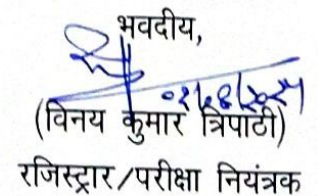 भवदीय,
(विनय कुमार त्रिपाठी)
रजिस्ट्रार/परीक्षा नियंत्रक